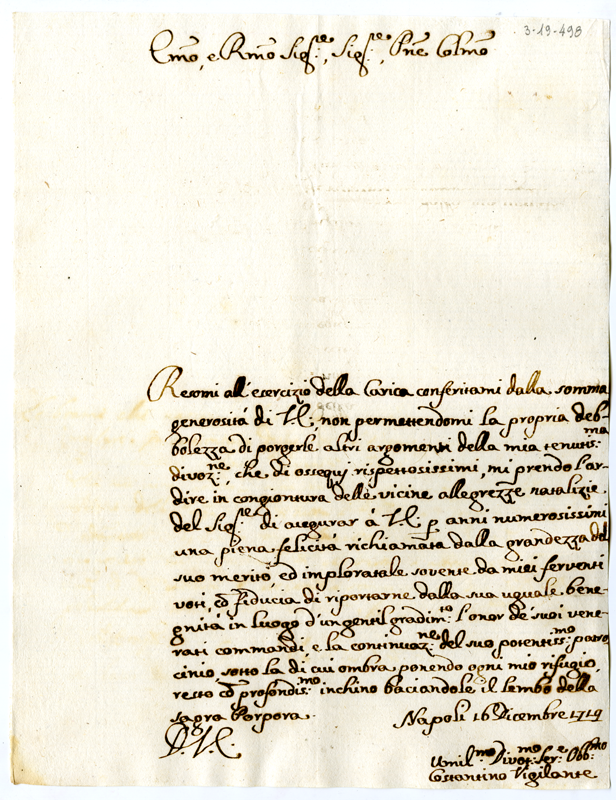 3-19-498
Emo, e Rmo Sigre, Sigre, Pne Colmo
Resomi all'esercizio della Carica conferitami dalla somma
generosità di V.E., non permettendomi la propria deb=
bolezza di porgerle altri argomenti della mia tenutis:ma
divoz:ne, che di ossequj rispettosissimi, mi prendo l'ar-
dire in congiontura delle vicine allegrezze natalizie
del Sigre di augurar à V.E. p anni numerosissimi
una piena felicità richiamata dalla grandezza del
suo merito, ed imploratale sovente da miei ferventi
voti, cõ fiducia di riportarne dalla sua uguale beni-
gnità in luogo d'un gentil gradim:to l'onor de suoi vene-
rati commandi, e la continuaz:ne del suo potentiss:mo patro
cinio, sotto la di cui ombra ponendo ogni mio rifugio,
resto cõ profondis:mo inchino baciandole il lembo della
sagra Porpora.
Napoli 16 Dicembre 1719
D. V. E.
Umil:mo Divot:mo Ser:e Obb:mo
Costantino Vigilante